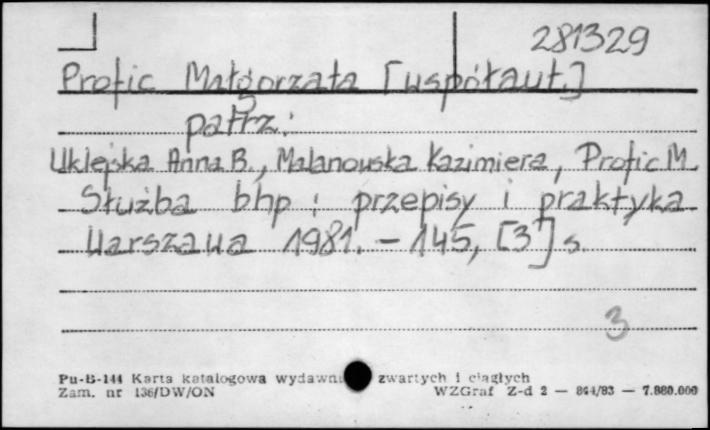 281329
Profic Małgorzata [współaut.]
patrz:
Uklejska Anna B., Malanowska Kazimiera, Profic M.
Służba bhp : przepisy i praktyka
Warszawa 1981. - 145, [3] s.
3
Pu-B-144 Karta katalogowa zwartych i ciągłych
Zam. nr 136/DW/ON WZGraf Z-d 2 — 844/83 — 7.880.000